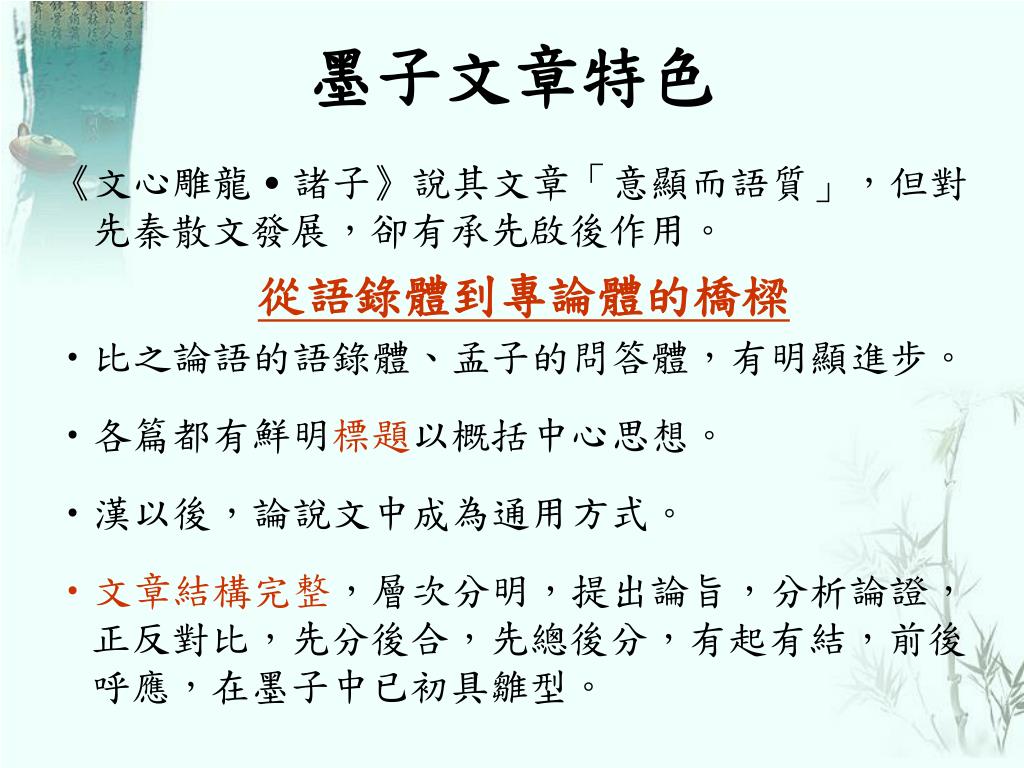 墨子文章特色
《文心雕龍•諸子》說其文章「意顯而語質」，但對
先秦散文發展，卻有承先啟後作用。
從語錄體到專論體的橋樑
•比之論語的語錄體、孟子的問答體，有明顯進步。
•各篇都有鮮明標題以概括中心思想。
•漢以後，論說文中成為通用方式。
•文章結構完整，層次分明，提出論旨，分析論證，
正反對比，先分後合，先總後分，有起有結，前後
呼應，在墨子中已初具雛型。